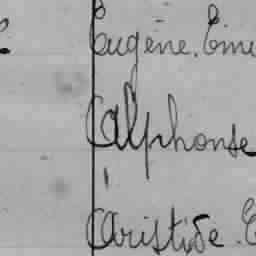 Eugène. Emi
Alphonse
Aristide. E